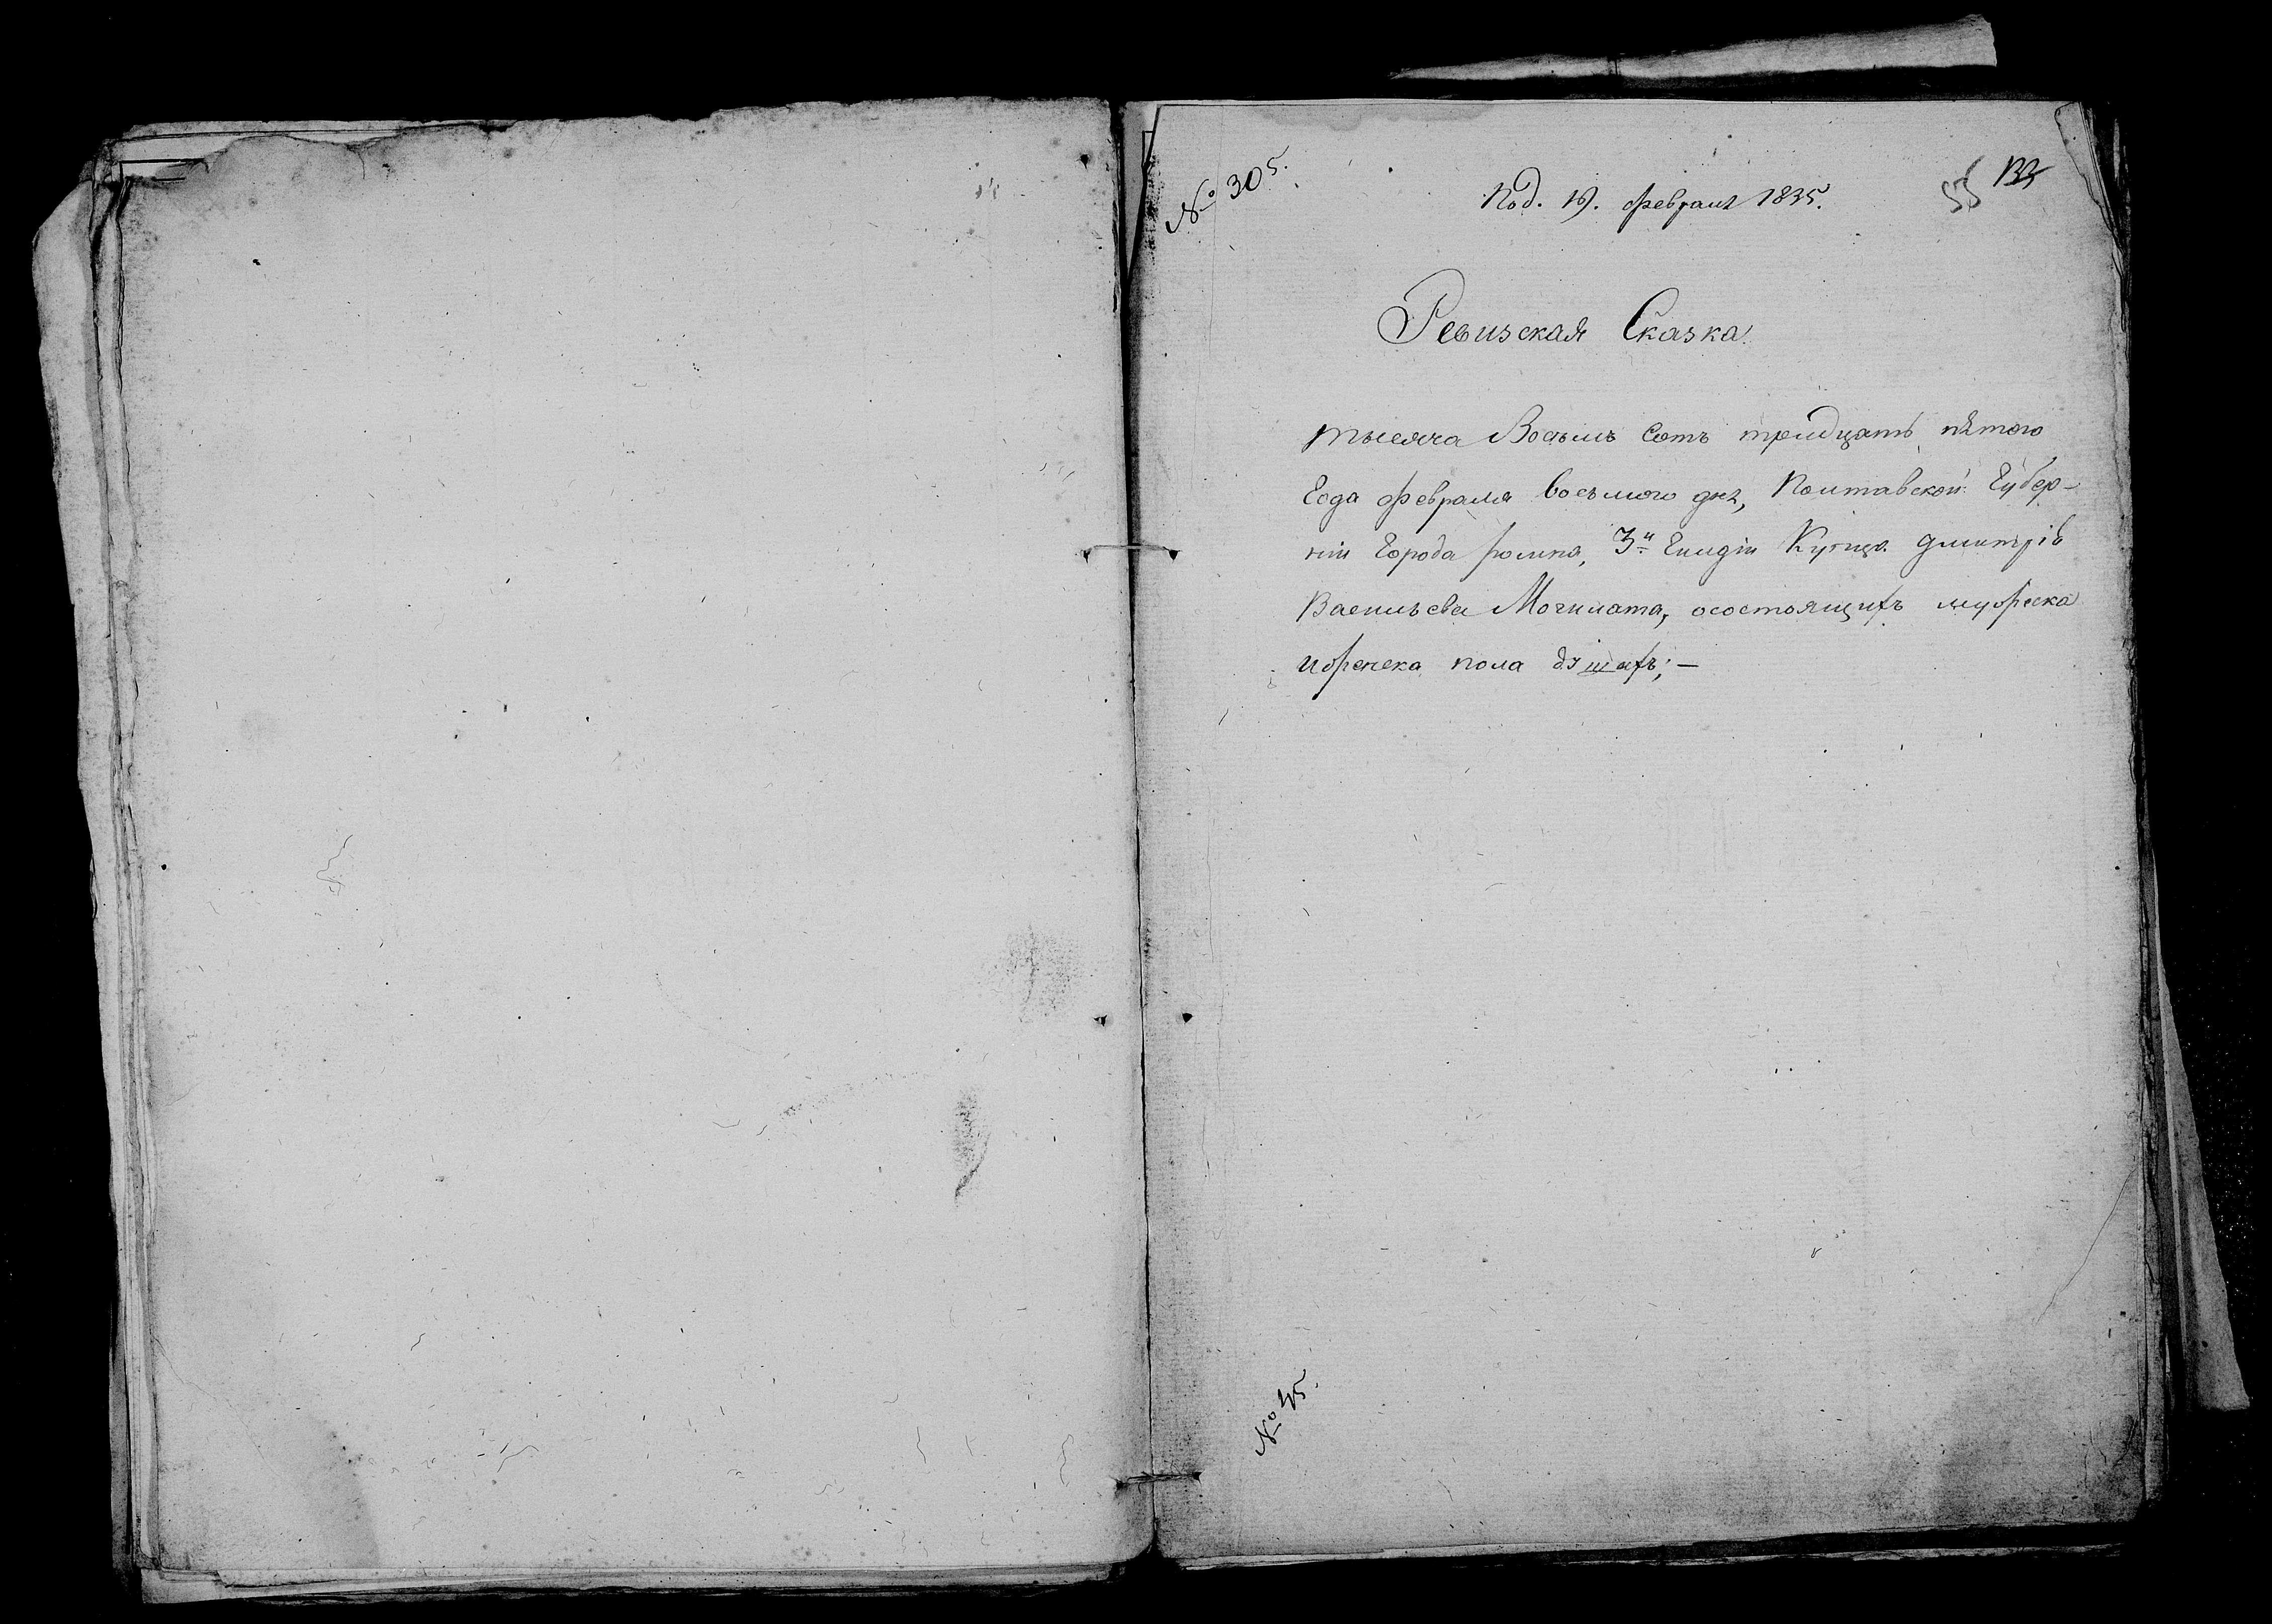 № 305.
Под. 19. февраля 1835.
55 133
Ревизская Сказка
тысяча Восъмъ Сотъ тридцать пятого
Года февраля восъмого дня, Полтавской Губер-
нии Города ромна, 3й Гилдіи Купца дмитрія
Василъева Могилата, осостоящихъ мужеска
иженска пола душахъ; —
№ 45.